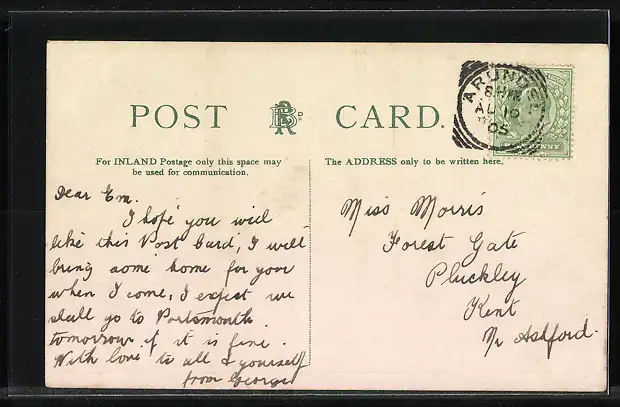 POST RBRD CARD.
For INLAND Postage only this space may
be used for communication.
The ADDRESS only to be written here.
ARUNDEL
8 PM
AU 10
05
NNY
Dear Em.
I hope you will
like this Post Card, I will
bring some home for you
when I come, I expect we
shall go to Portsmouth
tomorrow if it is fine.
With love to all & yourself
from George
Miss Morris
Forest Gate
Pluckley
Kent
Nr Ashford.